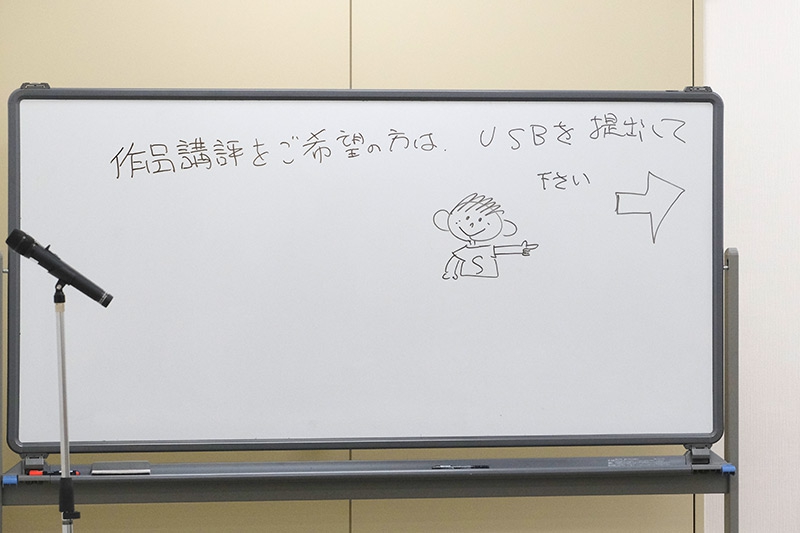 作品講評をご希望の方は、USBを提出して
下さい
S